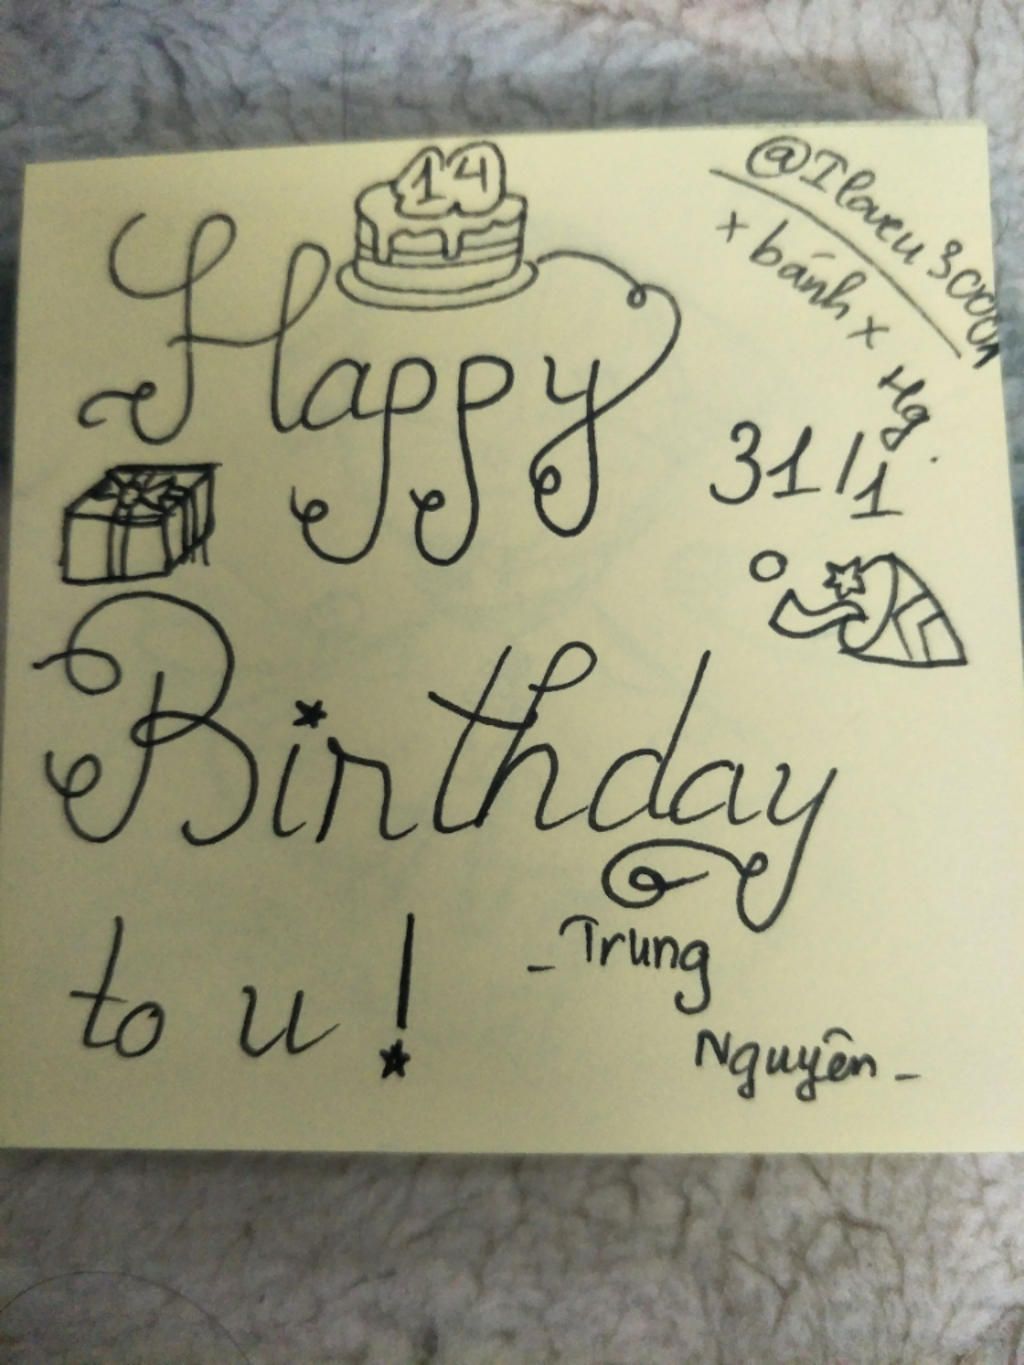 14
@Ilaeu3000n
x bánh x
Hg.
Happy
31/1
Birthday
to u!
- Trung
Nguyên -